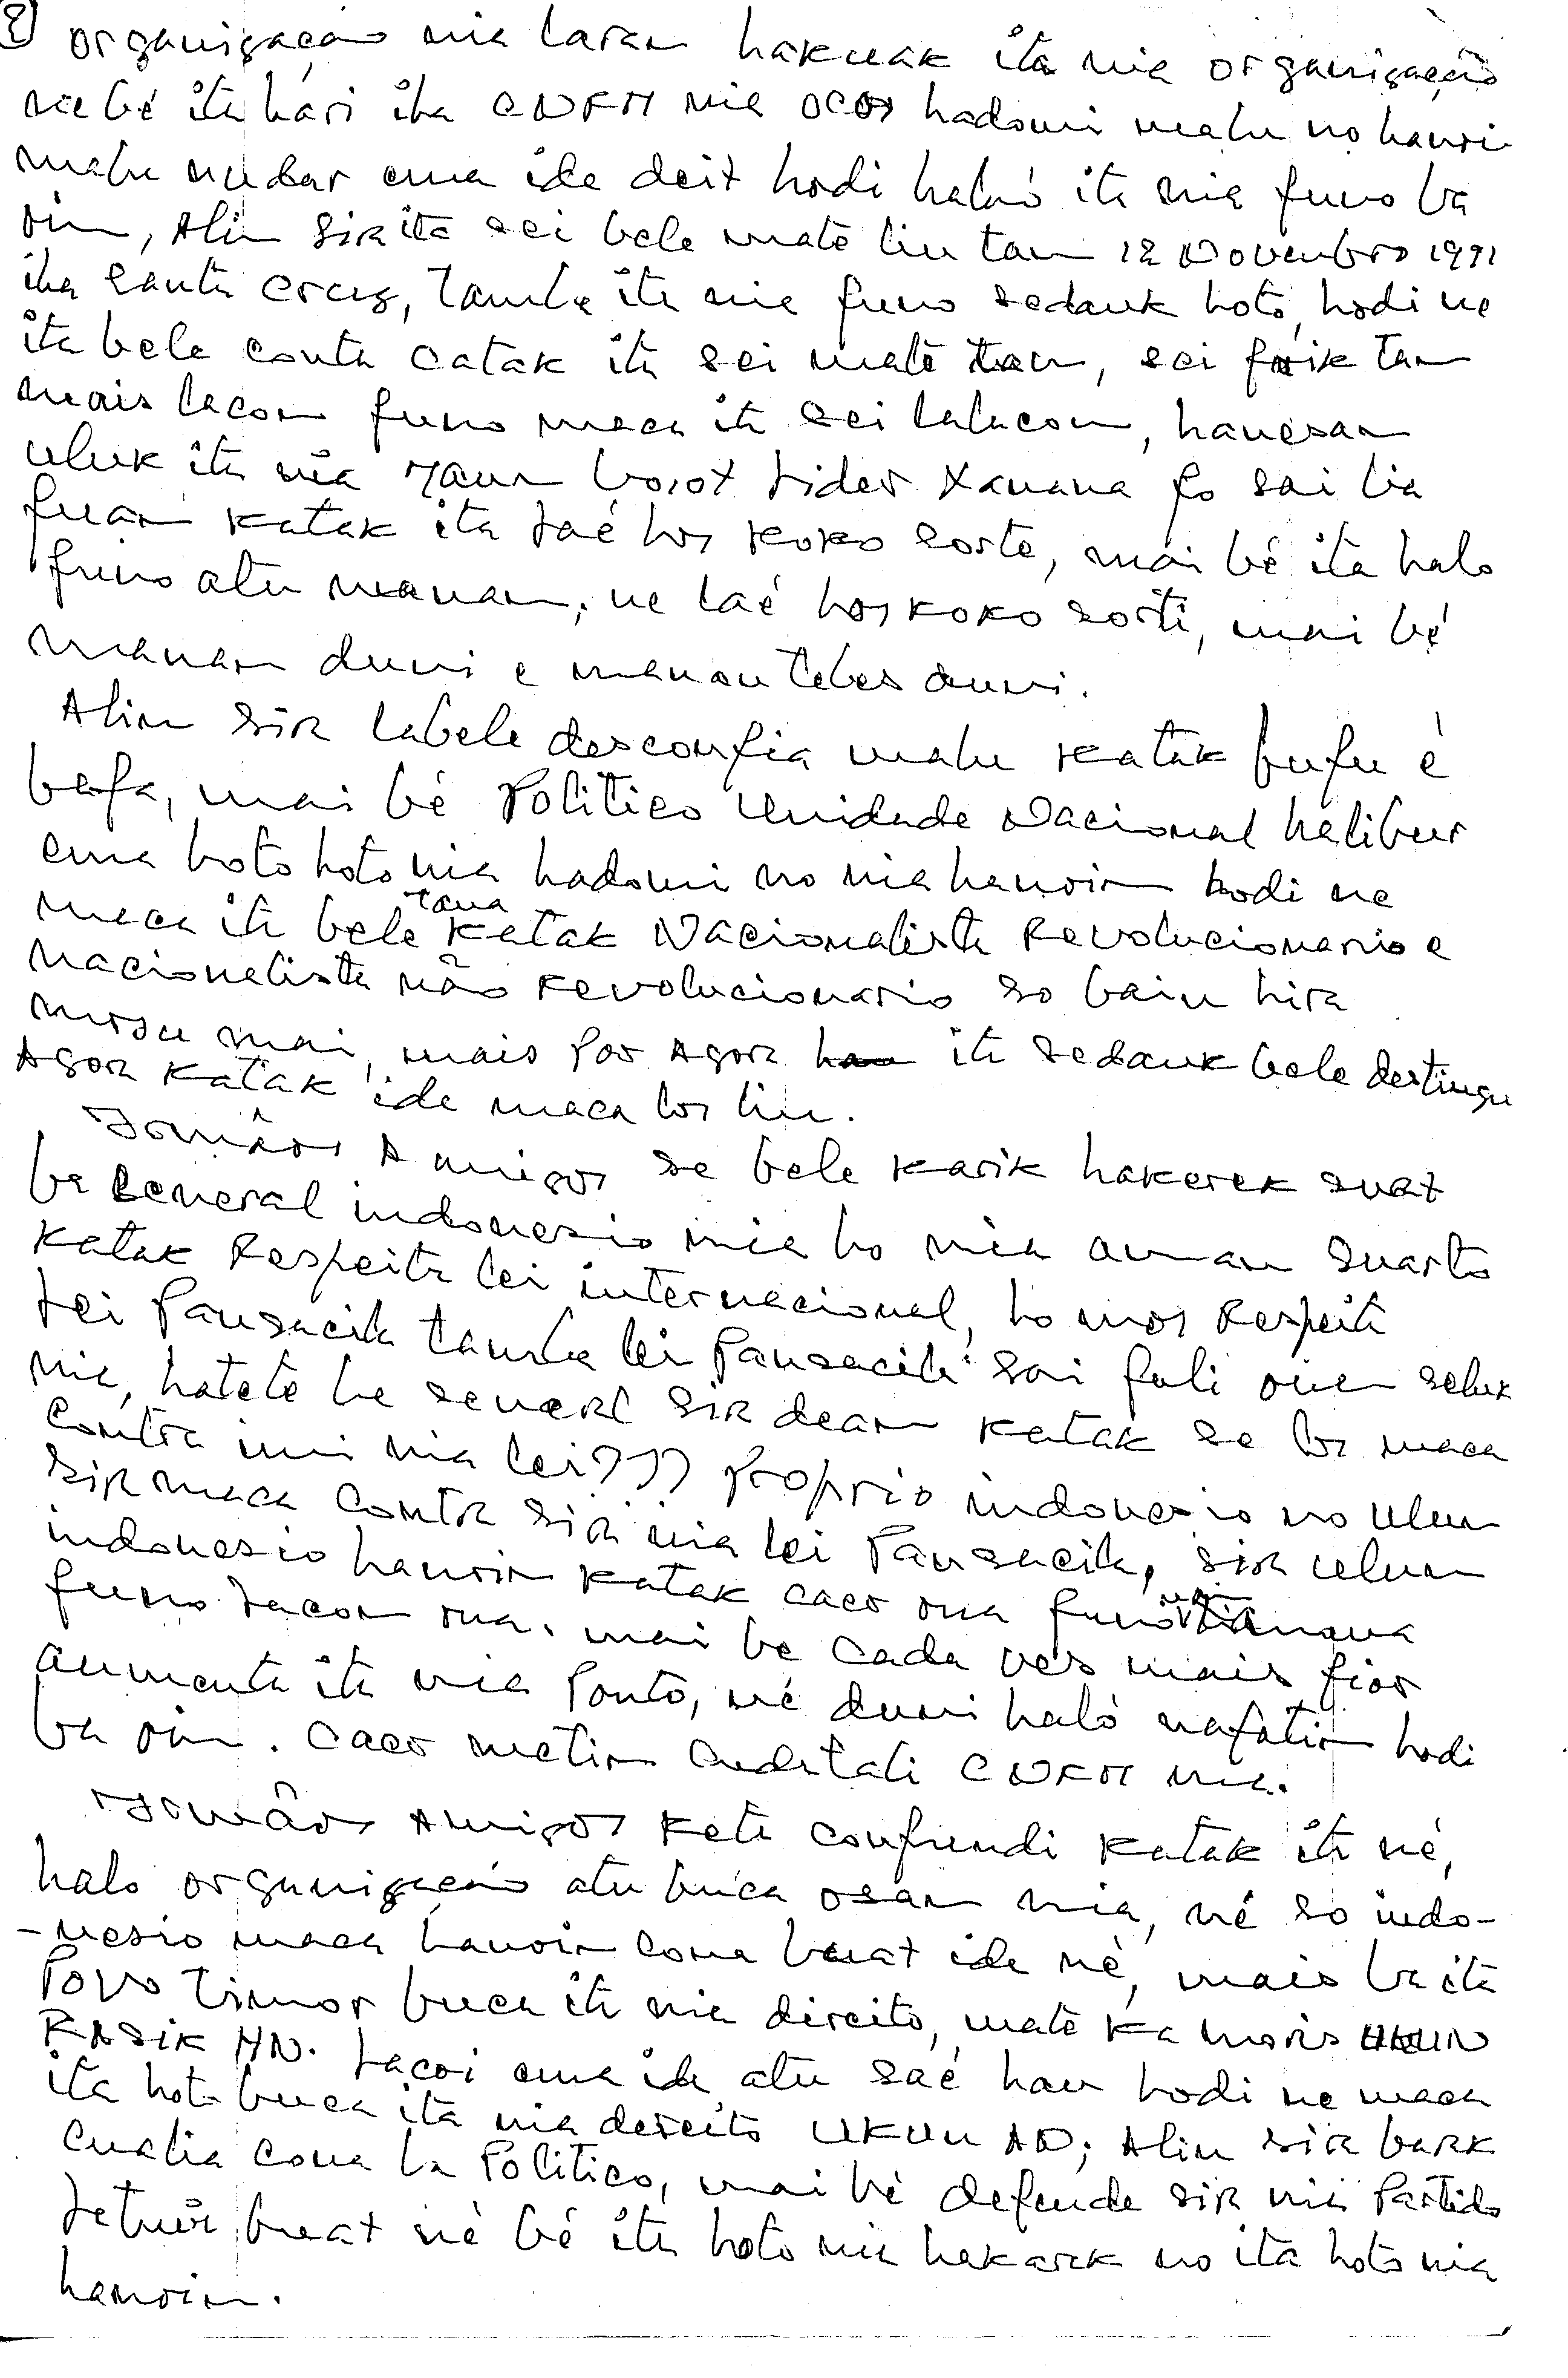 2 organização nia laran hakuak ita nia organização
nebé ita hari iha CNRM nia ocos hadomi malu no hanoin
malu nudar ema ida deit hodi haló ita nia funo ba
oin, Alin sira ita sei bele maté liu tan 12 Novembro 1991
iha Santa Cruz, Tamba ita nia funo sedauk hotó, hodi ne
ita bele conta catak ita sei maté tan, sei faik tan
mais lacon funo maca ita sei lalacon, hanesan
uluk ita nia maun boot Lider Xanana fo sai lia
fuan Katak ita laé los koko sorte, mai bé ita halo
funo atu manan, ne laé los koko sorti, mai bé
manan duni e manan tebes duni.
Alin sira labele desconfia malu katak fufu é
bafa, mai bé Politico Unidade Nacional halibur
ema hoto hoto nia hadomi no nia hanoin hodi ne
maca ita bele tana Katak Nacionalista Revolucionario e
nacionalista não Revolucionario so bain hira
mosu mai, mais Por Agora ita sedauk bele destingu
Agora katak ida maca los liu.
Irmãos Amigos se bele karik hakerek surat
ba General indonesio nia ho nia aman Suarto
katak Respeita lei internacional, ho mos Respeita
Lei Pansacila tamba lei Pansacila sai fali oin seluk
nia, hateté ba seneral sira dean katak se los maca
contra imi nia lei??? Proprio indonesio no ulun
sira maca contra sira nia lei Pansacila, sira ulun
indonesio hanoin katak caer ona funo Xanana
funo Lacon ona. mai be cada ves mais fior
aumenta ita nia Ponto, né duni haló nafatin hodi
ba oin. Caer metin Cuditali CNRM nia.
Irmãos Amigos keta confundi katak ita né,
halo organização atu buca osan nia, né so indo-
-nesio maca hanoin cona buat ida né, mais ba ita
Povo Timor buca ita nia direito, maté ka moris UKUN
RASIK AN. Lacoi ema ida atu saé hau hodi ne maca
ita hoto buca ita nia dereito UKUN AN; Alin sira barak
cualia cona ba Politico, mai bé defende sira nia Partido
Letuir buat né bé ita hoto nia hakarak no ita hoto nia
hanoin.